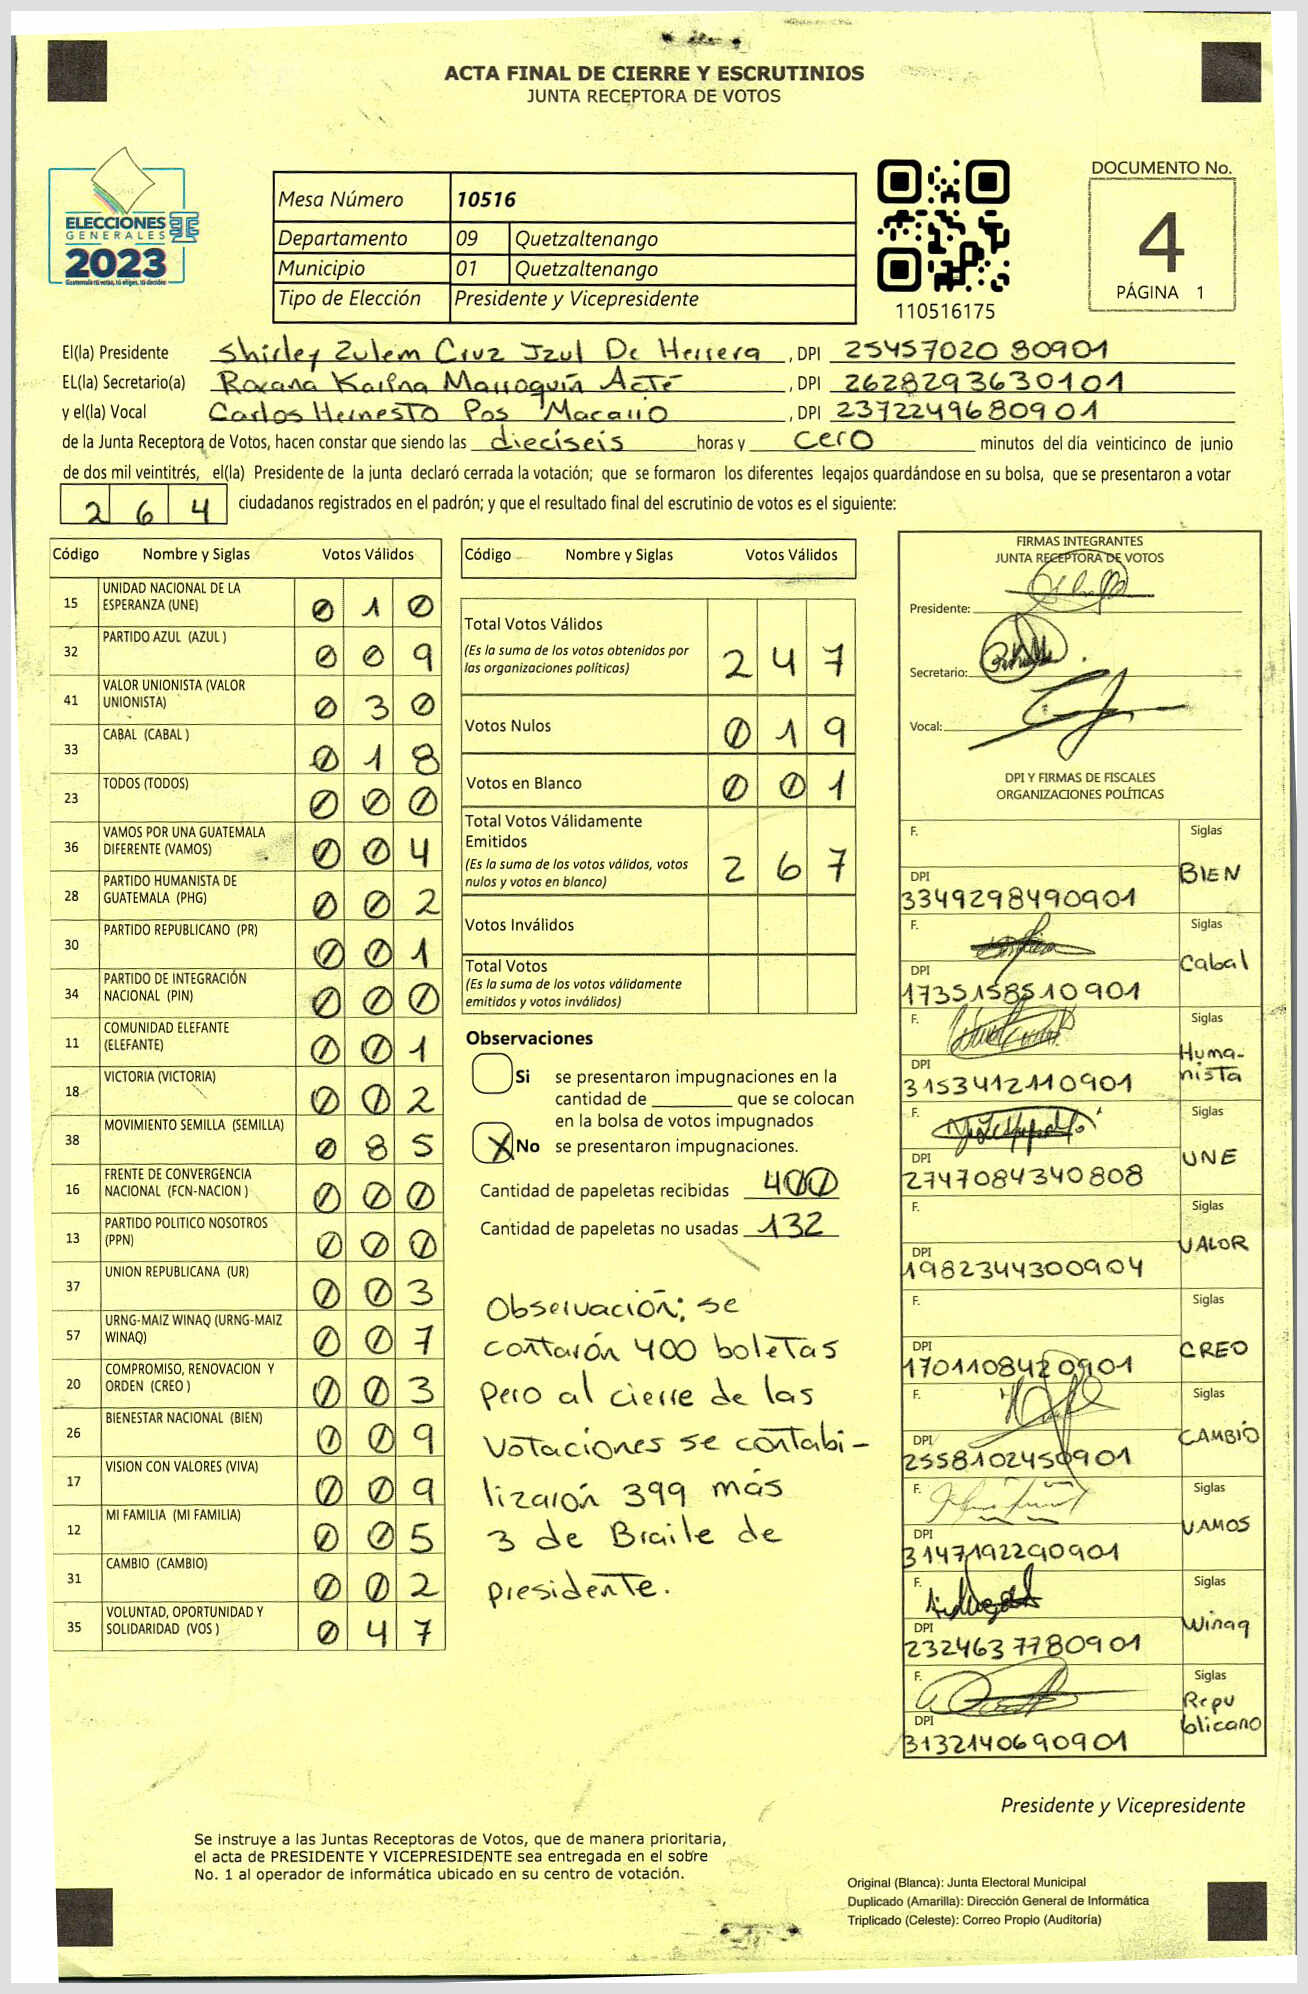 ACTA FINAL DE CIERRE Y ESCRUTINIOS
JUNTA RECEPTORA DE VOTOS
ELECCIONES
GENERALES
2023
Guatemala tú votas, tú eliges, tú decides
Mesa Número 10516
Departamento 09 Quetzaltenango
Municipio 01 Quetzaltenango
Tipo de Elección Presidente y Vicepresidente
110516175
DOCUMENTO No.
4
PÁGINA 1
El(la) Presidente Shirley Zulem Cruz Izul De Herrera , DPI 25457020 80901
EL(la) Secretario(a) Roxana Karina Marroquín Acté , DPI 2628293630101
y el(la) Vocal Carlos Hernesto Pos Macario , DPI 2372249680901
de la Junta Receptora de Votos, hacen constar que siendo las dieciseis horas y cero minutos del día veinticinco de junio
de dos mil veintitrés, el(la) Presidente de la junta declaró cerrada la votación; que se formaron los diferentes legajos guardándose en su bolsa, que se presentaron a votar
264 ciudadanos registrados en el padrón; y que el resultado final del escrutinio de votos es el siguiente:
Código Nombre y Siglas Votos Válidos
15 UNIDAD NACIONAL DE LA ESPERANZA (UNE) 0 1 0
32 PARTIDO AZUL (AZUL ) 0 0 9
41 VALOR UNIONISTA (VALOR UNIONISTA) 0 3 0
33 CABAL (CABAL ) 0 1 8
23 TODOS (TODOS) 0 0 0
36 VAMOS POR UNA GUATEMALA DIFERENTE (VAMOS) 0 0 4
28 PARTIDO HUMANISTA DE GUATEMALA (PHG) 0 0 2
30 PARTIDO REPUBLICANO (PR) 0 0 1
34 PARTIDO DE INTEGRACIÓN NACIONAL (PIN) 0 0 0
11 COMUNIDAD ELEFANTE (ELEFANTE) 0 0 1
18 VICTORIA (VICTORIA) 0 0 2
38 MOVIMIENTO SEMILLA (SEMILLA) 0 8 5
16 FRENTE DE CONVERGENCIA NACIONAL (FCN-NACION ) 0 0 0
13 PARTIDO POLITICO NOSOTROS (PPN) 0 0 0
37 UNION REPUBLICANA (UR) 0 0 3
57 URNG-MAIZ WINAQ (URNG-MAIZ WINAQ) 0 0 7
20 COMPROMISO, RENOVACION Y ORDEN (CREO ) 0 0 3
26 BIENESTAR NACIONAL (BIEN) 0 0 9
17 VISION CON VALORES (VIVA) 0 0 9
12 MI FAMILIA (MI FAMILIA) 0 0 5
31 CAMBIO (CAMBIO) 0 0 2
35 VOLUNTAD, OPORTUNIDAD Y SOLIDARIDAD (VOS ) 0 4 7
Código Nombre y Siglas Votos Válidos
Total Votos Válidos 2 4 7
(Es la suma de los votos obtenidos por
las organizaciones políticas)
Votos Nulos 0 1 9
Votos en Blanco 0 0 1
Total Votos Válidamente
Emitidos 2 6 7
(Es la suma de los votos válidos, votos
nulos y votos en blanco)
Votos Inválidos
Total Votos
(Es la suma de los votos válidamente
emitidos y votos inválidos)
Observaciones
Si se presentaron impugnaciones en la
cantidad de ________ que se colocan
en la bolsa de votos impugnados
X No se presentaron impugnaciones.
Cantidad de papeletas recibidas 400
Cantidad de papeletas no usadas 132
Observación; se
contarón 400 boletas
pero al cierre de las
votaciones se contabi-
lizarón 399 más
3 de Braile de
presidente.
FIRMAS INTEGRANTES
JUNTA RECEPTORA DE VOTOS
Presidente:
Secretario:
Vocal:
DPI Y FIRMAS DE FISCALES
ORGANIZACIONES POLÍTICAS
F. Siglas
BIEN
DPI
3349298490901
F. Siglas
Cabal
DPI
1735158510901
F. Siglas
Huma-
nista
DPI
3153412110901
F. Siglas
UNE
DPI
2747084340808
F. Siglas
VALOR
DPI
1982344300904
F. Siglas
CREO
DPI
1701108420901
F. Siglas
CAMBIO
DPI
2558102450901
F. Siglas
VAMOS
DPI
3147192290901
F. Siglas
Winaq
DPI
2324637780901
F. Siglas
Repu
blicano
DPI
3132140690901
Presidente y Vicepresidente
Se instruye a las Juntas Receptoras de Votos, que de manera prioritaria,
el acta de PRESIDENTE Y VICEPRESIDENTE sea entregada en el sobre
No. 1 al operador de informática ubicado en su centro de votación.
Original (Blanca): Junta Electoral Municipal
Duplicado (Amarilla): Dirección General de Informática
Triplicado (Celeste): Correo Propio (Auditoría)